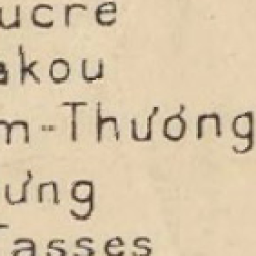 ucre
akou
m-Thướng
ưng
Tasses